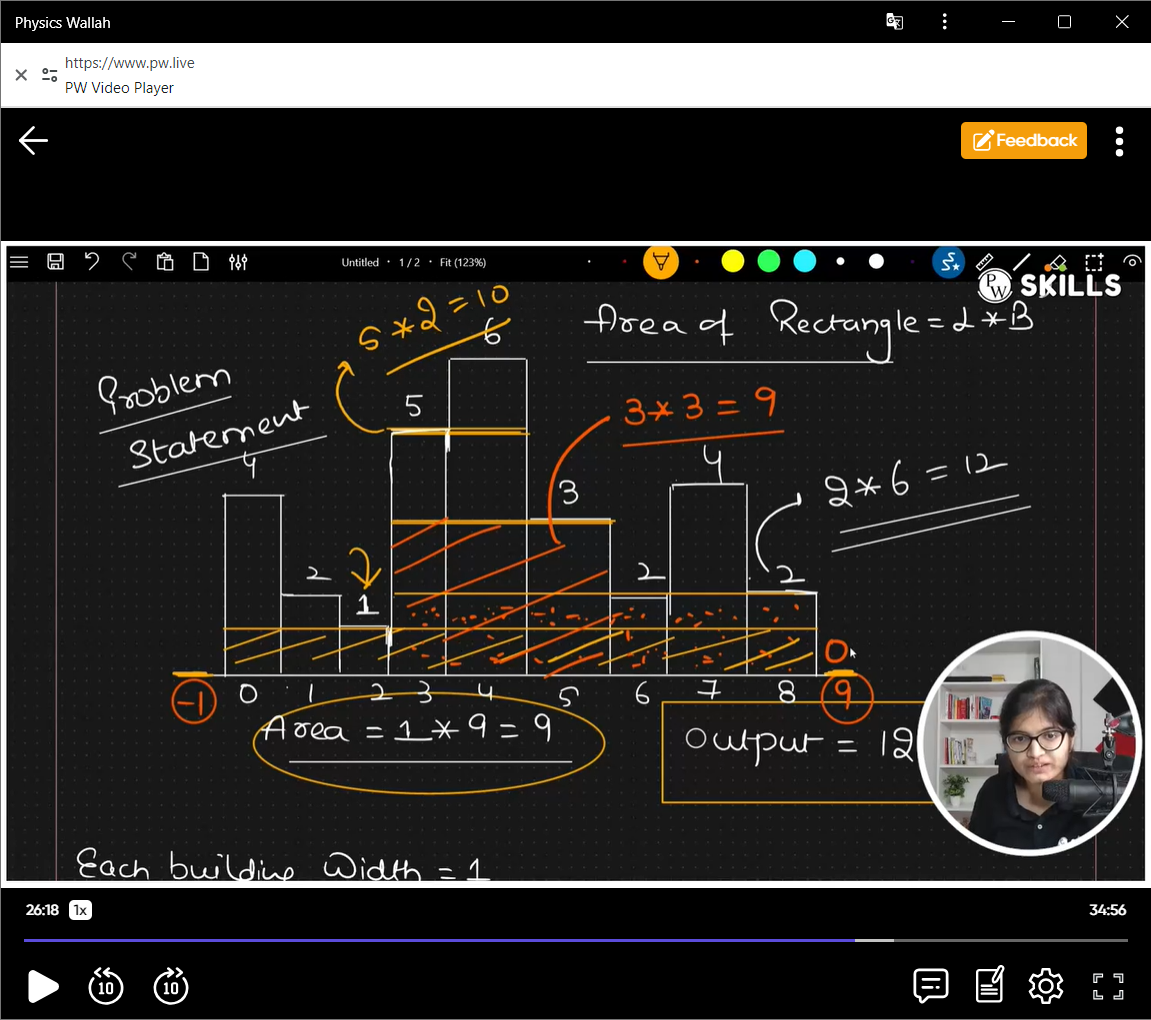 Physics Wallah
https://www.pw.live
PW Video Player
Feedback
Untitled · 1 / 2 · Fit (123%)
PW SKILLS
5 * 2 = 10
Area of Rectangle = L * B
6
Problem
Statement
5
3 * 3 = 9
4
4
3
2 * 6 = 12
2
1
2
2
0
-1 0 1 2 3 4 5 6 7 8 9
Area = 1 * 9 = 9
Output = 12
Each building Width = 1
26:18 1x
34:56
10 10